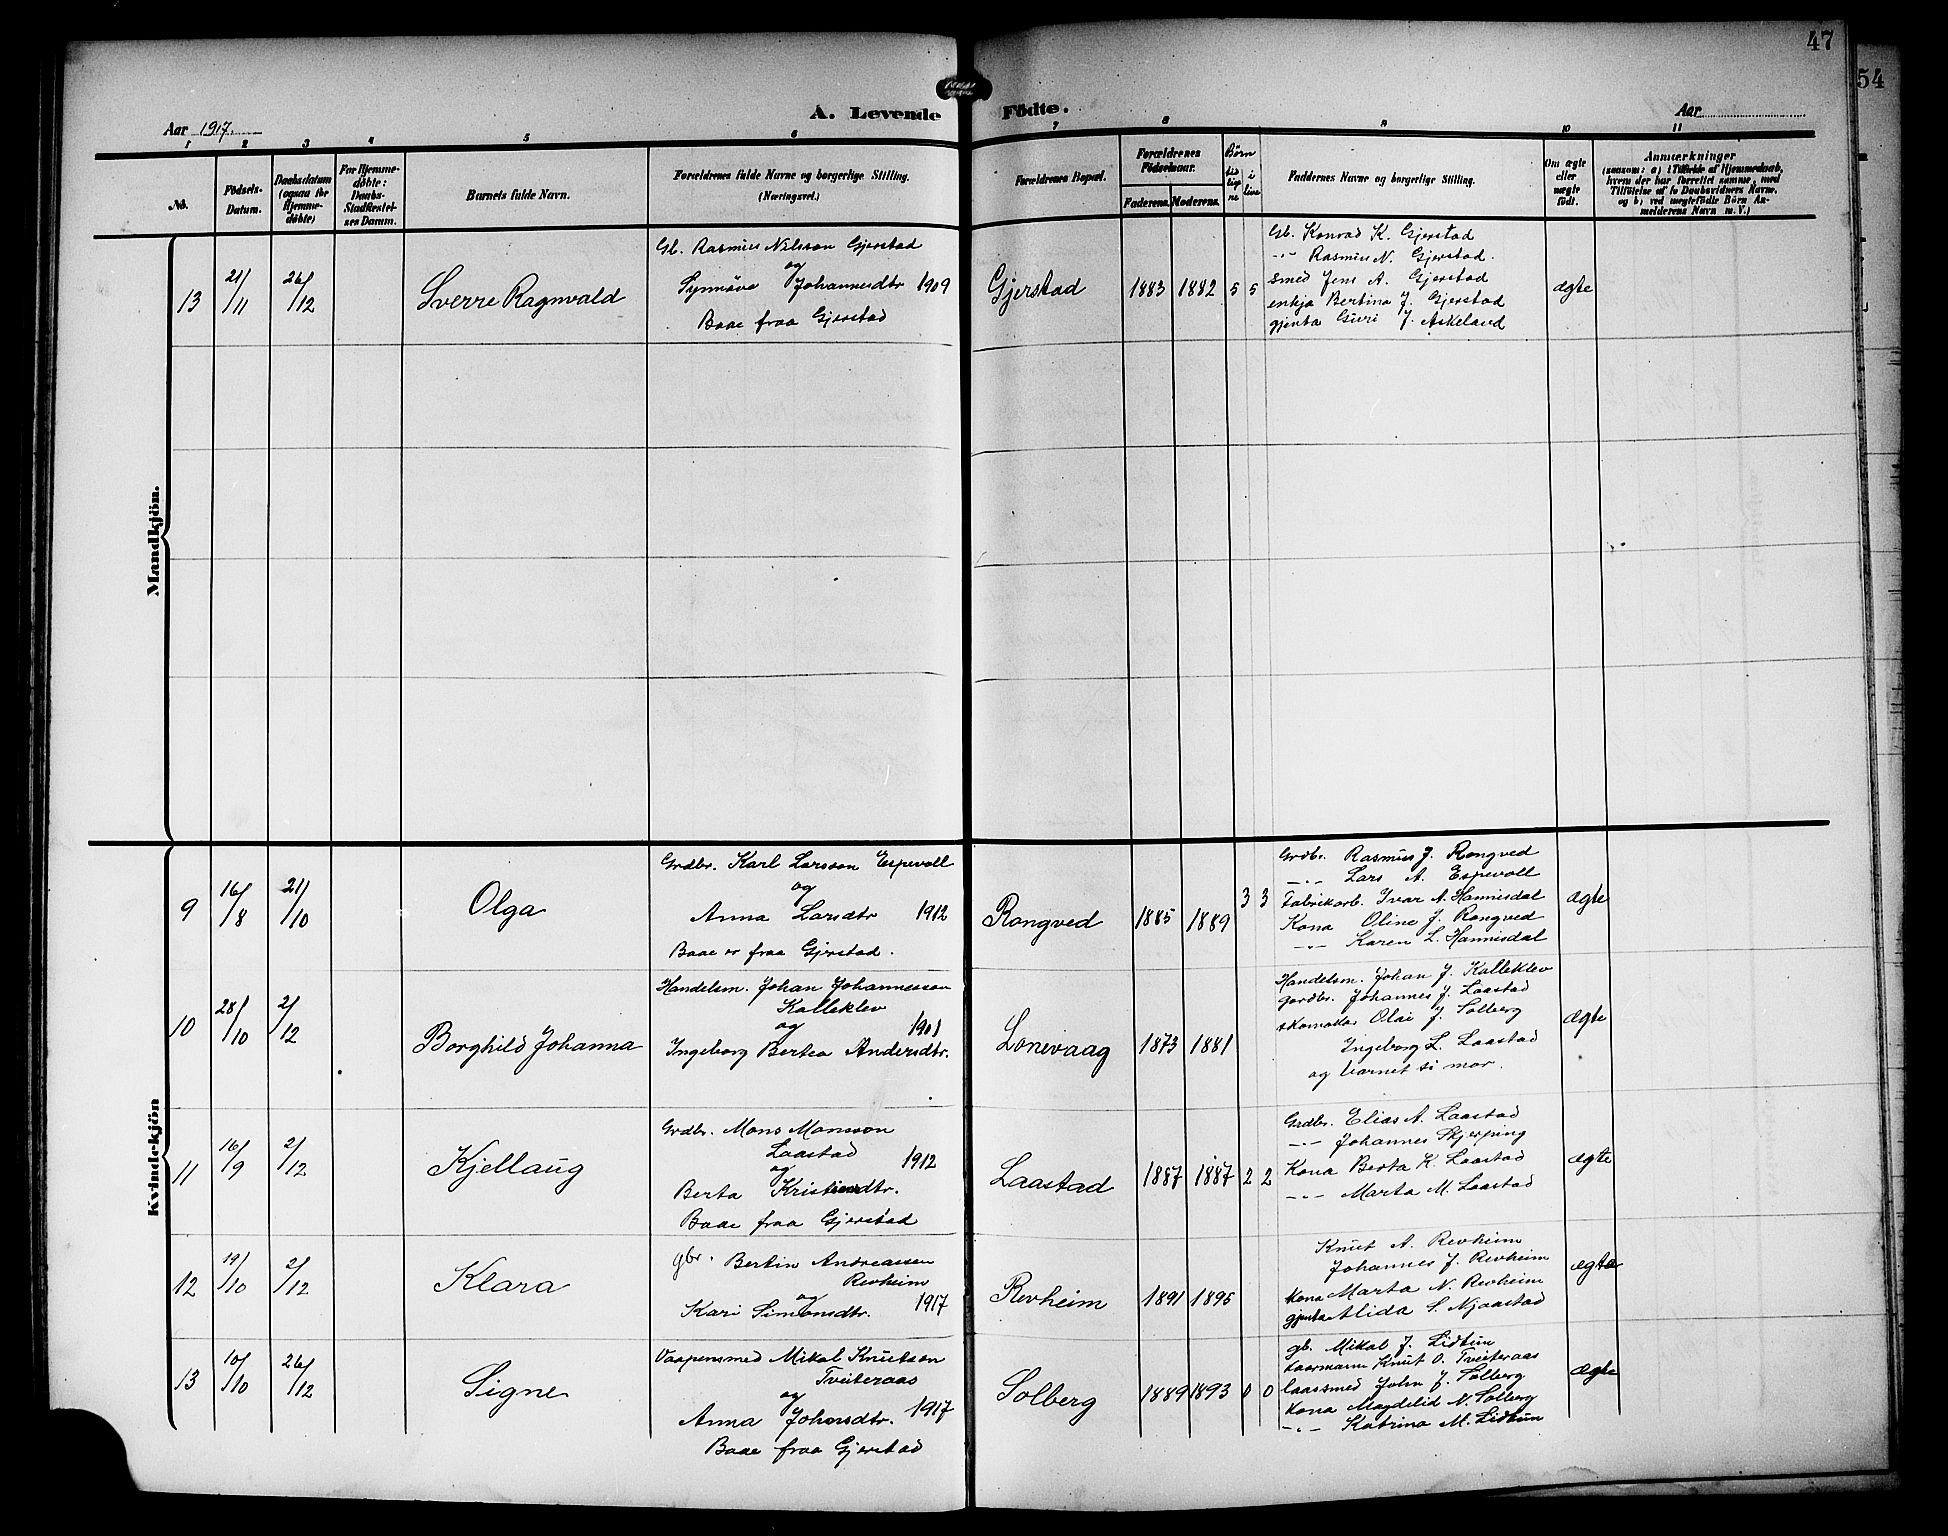 47
54
A. Levende Födte.
Aar 1917.
Aar
1 2 3 4 5 6 7 8 9 10 11
No.
Födsels-Datum.
Daabsdatum (ogsaa for Hjemme-döbte)
For Hjemme-döbte: Daabs-Stadfæstel-ses Datum.
Barnets fulde Navn.
Forældrenes fulde Navne og borgerlige Stilling. (Næringsvei.)
Forældrenes Bopæl.
Forældrenes Födselsaar.
Faderens. Moderens.
Börn tidligere i live
Faddernes Navne og borgerlige Stilling.
Om ægte eller uægte födt.
Anmærkninger
(saasom: a) i Tilfælde af Hjemmedaab, hvem der har forrettet samme, med Tilföielse af to Daabsvidners Navne. og b) ved uægtefödte Börn An-melderens Navn m. V.)
Mandkjön.
13
21/11
26/12
Sverre Ragnvald
Gb. Rasmus Nilsson Gjerstad
og
Synnöve Johannesdtr 1909
Baae fraa Gjerstad
Gjerstad
1883 1882 5 5
Gb. Konrad K. Gjerstad
-"- Rasmus N. Gjerstad.
smed Jens A. Gjerstad
enkja Bertina J. Gjerstad
gjenta Guri J. Askeland
ægte
Kvindekjön
9
16/8
21/10
Olga
Grdbr. Karl Larsson Espevoll
og
Anna Larsdtr 1912
Baae er fraa Gjerstad.
Rongved
1885 1889 3 3
Grdbr. Rasmus J. Rongved
-"- Lars A. Espevoll
Fabrikarb. Ivar A. Hannisdal
Kona Oline J. Rongved
-"- Karen L. Hannisdal
ægte
10
28/10
2/12
Borghild Johanna
Handelsm. Johan Johannesson
Kalleklev
og 1901
Ingeborg Bertea Andersdtr.
Lonevaag
1873 1881
Handelsm. Johan J. Kalleklev
gardbr. Johannes J. Laastad
skomakar Olai J. Solberg
Ingeborg L. Laastad
og barnet si mor.
ægte
11
16/9
2/12
Kjellaug
Grdbr. Mons Monsson
Laastad
og 1912
Berta Kristiensdtr.
Baae fraa Gjerstad
Laastad
1887 1887 2 2
Grdbr. Elias A. Laastad
-"- Johannes Skjerping
Kona Berta K. Laastad
-"- Marta M. Laastad
ægte
12
19/10
2/12
Klara
gbr. Bertin Andreassen
Revheim
og
Kari Simonsdtr. 1917
Revheim
1891 1895
Knut A. Revheim
Johannes J. Revheim
kona Marta N. Revheim
gjenta Alida S. Njaastad
ægte
13
10/10
26/12
Signe
Vaapensmed Mikal Knutson
Tveiteraas
og
Anna Johansdtr. 1917
Baae fraa Gjerstad
Solberg
1889 1893 0 0
gb. Mikal J. Lidtun
Knut O. Tveiteraas
laassmed John J. Solberg
kona Magdelid N. Solberg
-"- Katrina M. Lidtun
ægte